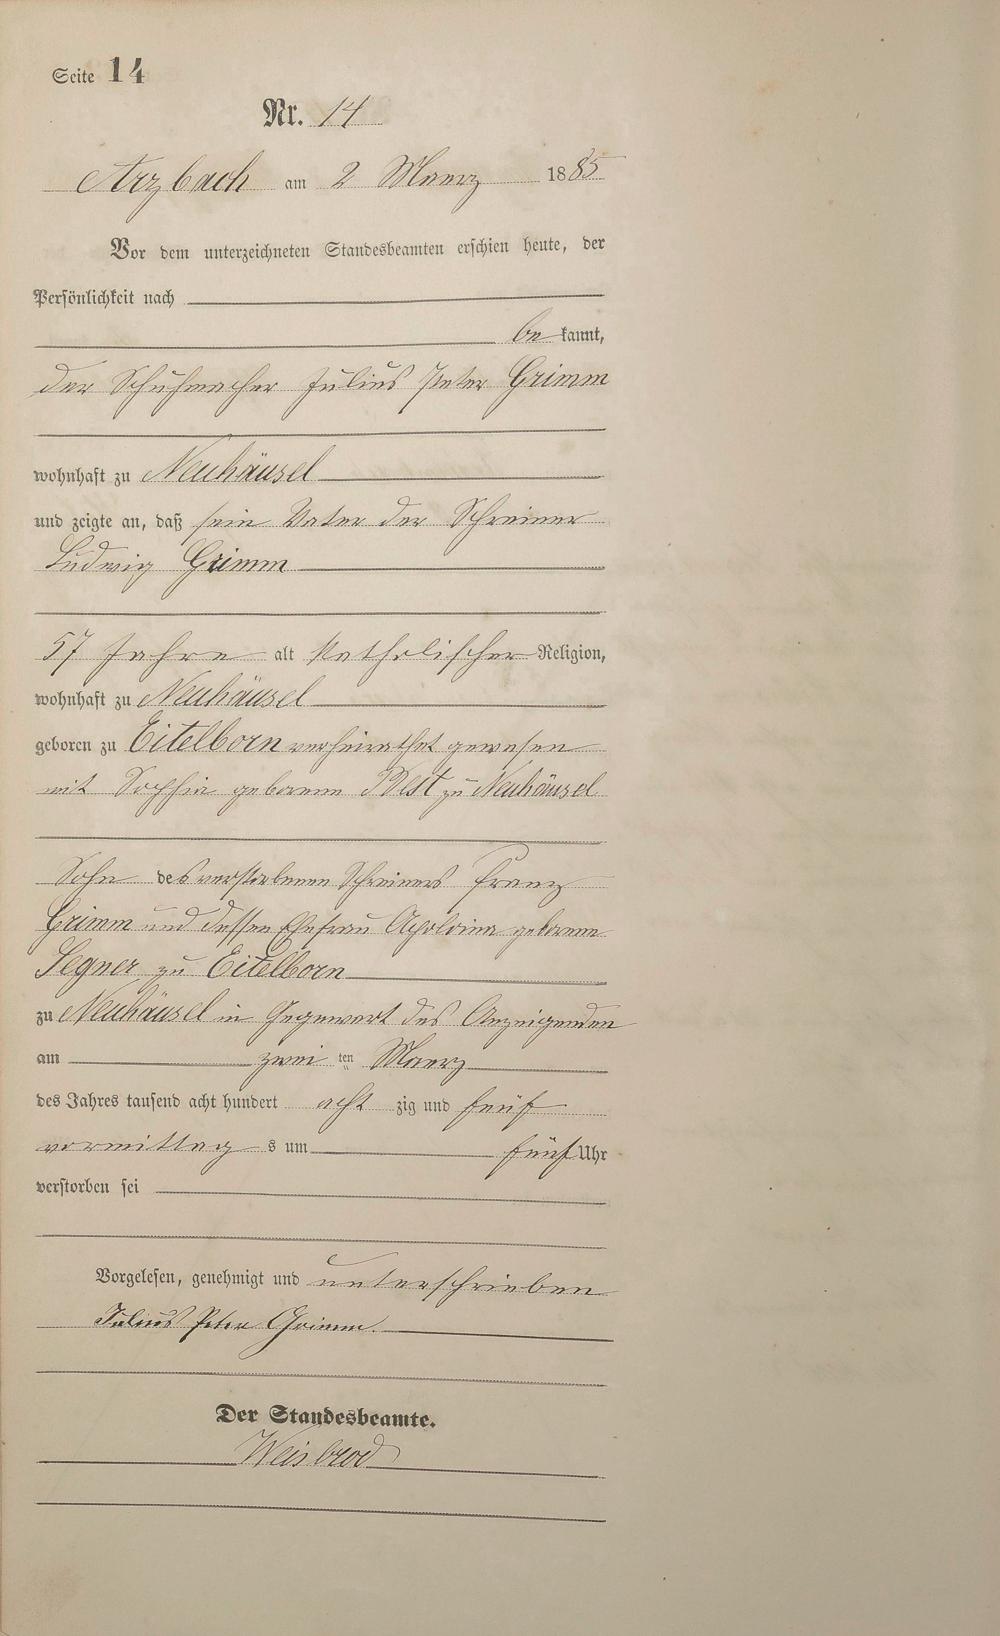 Seite 14
Nr. 14
Arzbach am 2 Maerz 1885
Vor dem unterzeichneten Standesbeamten erschien heute, der
Persönlichkeit nach
be kannt,
der Schuhmacher Julius Peter Grimm
wohnhaft zu Neuhäusel
und zeigte an, daß sein Vater der Schreiner
Ludwig Grimm
57 Jahre alt katholischer Religion,
wohnhaft zu Neuhäusel
geboren zu Eitelborn verheirathet gewesen
mit Sophia geborene Best zu Neuhäusel
Sohn des verstorbenen Schreiners Franz
Grimm und dessen Ehefrau Apolonia geborene
Segner zu Eitelborn
zu Neuhäusel in Gegenwart des Anzeigenden
am zwei ten Maerz
des Jahres tausend acht hundert acht zig und fünf
vormittag s um fünf Uhr
verstorben sei
Vorgelesen, genehmigt und unterschrieben
Julius Peter Grimm.
Der Standesbeamte.
Weisbrod